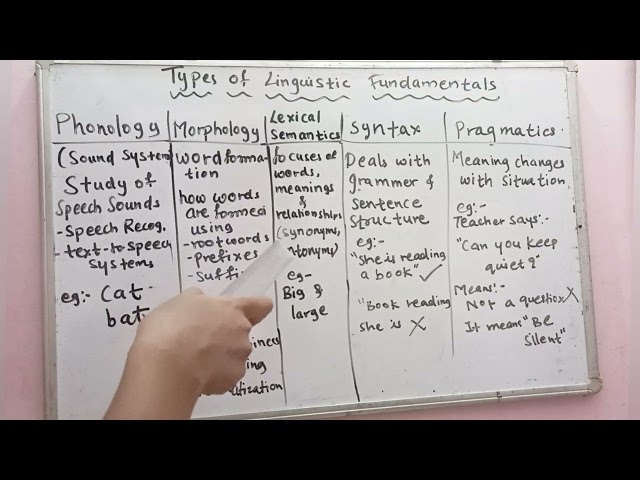 Types of Linguistic Fundamentals
Phonology
(Sound System)
Study of
Speech Sounds
- Speech Recog.
- text-to-speech
systems
eg:- Cat
bat
Morphology
wordforma-
tion
how words
are formed
using
- rootwords
- Prefixes
- Suffi
Lexical
Semantics
focuses of
words,
meanings
&
relationships
(synonyms,
antonyms)
eg-
Big &
large
Syntax
Deals with
grammer &
sentence
structure
eg:-
"she is reading
a book" ✓
"Book reading
she is X
Pragmatics.
Meaning changes
with Situation.
eg:-
Teacher says:-
"Can you keep
quiet?"
Means:-
Not a question X
It means "Be
Silent"